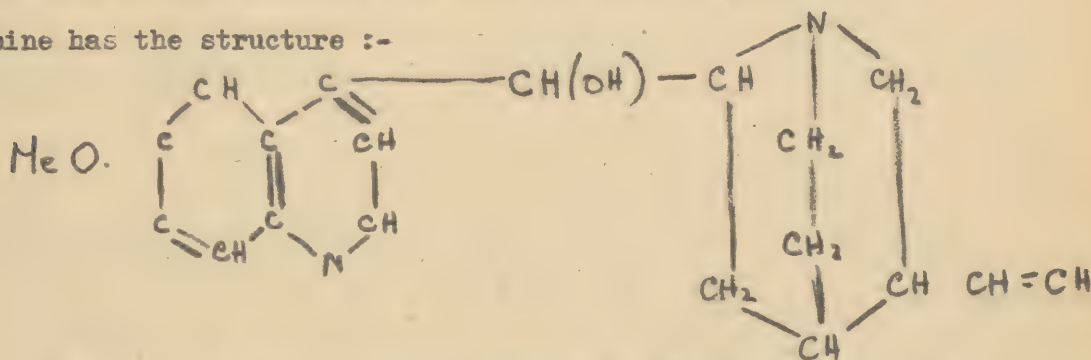 ine has the structure :-
N
CH C CH(OH) CH CH₂
C C CH CH₂
MeO.
C C CH CH₂
CH N CH₂ CH CH=CH
CH